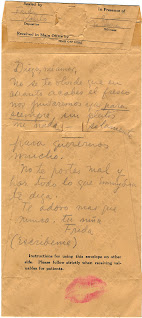 in Presence of
Received in Main Office by
Diego, mi amor,
No se te olvide que en
cuanto acabes el fresco
nos juntaremos ya para
siempre, sin pleitos
ni nada, solo
para querernos
mucho.
No te portes mal y
haz todo lo que
te diga.
Te adoro mas que
nunca. tu niña
Frida
(escribeme)
Instructions for using this envelope on other
side. Please follow strictly when receiving val-
uables for patients.